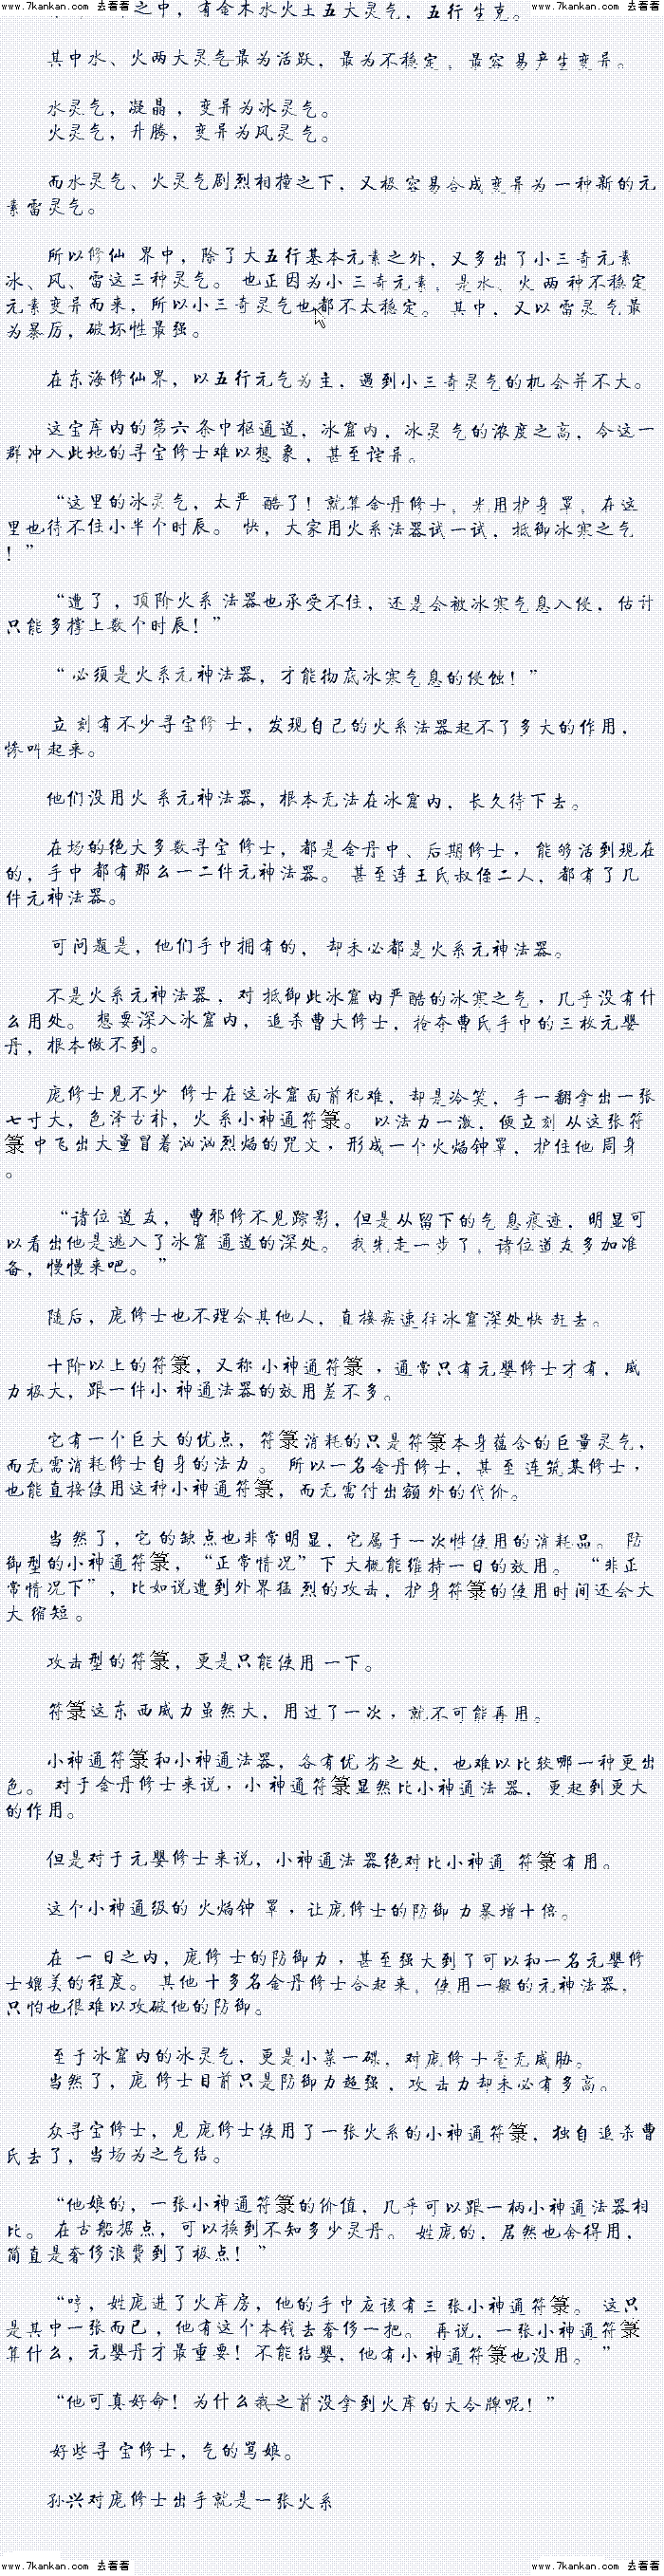 www.7kankan.com 去看看 www.7kankan.com 去看看
之中，有金木水火土五大灵气，五行生克。
其中水、火两大灵气最为活跃，最为不稳定，最容易产生变异。
水灵气，凝晶，变异为冰灵气。
火灵气，升腾，变异为风灵气。
而水灵气、火灵气剧烈相撞之下，又极容易合成变异为一种新的元
素雷灵气。
所以修仙界中，除了大五行基本元素之外，又多出了小三奇元素
冰、风、雷这三种灵气。也正因为小三奇元素，是水、火两种不稳定
元素变异而来，所以小三奇灵气也都不太稳定。其中，又以雷灵气最
为暴厉，破坏性最强。
在东海修仙界，以五行元气为主，遇到小三奇灵气的机会并不大。
这宝库内的第六条中枢通道，冰窟内，冰灵气的浓度之高，令这一
群冲入此地的寻宝修士难以想象，甚至诧异。
“这里的冰灵气，太严酷了！就算金丹修士，光用护身罩，在这
里也待不住小半个时辰。快，大家用火系法器试一试，抵御冰寒之气
！”
“遭了，顶阶火系法器也承受不住，还是会被冰寒气息入侵，估计
只能多撑上数个时辰！”
“必须是火系元神法器，才能彻底冰寒气息的侵蚀！”
立刻有不少寻宝修士，发现自己的火系法器起不了多大的作用，
惨叫起来。
他们没用火系元神法器，根本无法在冰窟内，长久待下去。
在场的绝大多数寻宝修士，都是金丹中、后期修士，能够活到现在
的，手中都有那么一二件元神法器。甚至连王氏叔侄二人，都有了几
件元神法器。
可问题是，他们手中拥有的，却未必都是火系元神法器。
不是火系元神法器，对抵御此冰窟内严酷的冰寒之气，几乎没有什
么用处。想要深入冰窟内，追杀曹大修士，抢夺曹氏手中的三枚元婴
丹，根本做不到。
庞修士见不少修士在这冰窟面前犯难，却是冷笑，手一翻拿出一张
七寸大，色泽古朴，火系小神通符箓。以法力一激，便立刻从这张符
箓中飞出大量冒着汹汹烈焰的咒文，形成一个火焰钟罩，护住他周身
。
“诸位道友，曹邪修不见踪影，但是从留下的气息痕迹，明显可
以看出他是逃入了冰窟通道的深处。我先走一步了，诸位道友多加准
备，慢慢来吧。”
随后，庞修士也不理会其他人，直接疾速往冰窟深处快赶去。
十阶以上的符箓，又称小神通符箓，通常只有元婴修士才有，威
力极大，跟一件小神通法器的效用差不多。
它有一个巨大的优点，符箓消耗的只是符箓本身蕴含的巨量灵气，
而无需消耗修士自身的法力。所以一名金丹修士，甚至连筑基修士，
也能直接使用这种小神通符箓，而无需付出额外的代价。
当然了，它的缺点也非常明显，它属于一次性使用的消耗品。防
御型的小神通符箓，“正常情况”下大概能维持一日的效用。“非正
常情况下”，比如说遭到外界猛烈的攻击，护身符箓的使用时间还会大
大缩短。
攻击型的符箓，更是只能使用一下。
符箓这东西威力虽然大，用过了一次，就不可能再用。
小神通符箓和小神通法器，各有优劣之处，也难以比较哪一种更出
色。对于金丹修士来说，小神通符箓显然比小神通法器，更起到更大
的作用。
但是对于元婴修士来说，小神通法器绝对比小神通符箓有用。
这个小神通级的火焰钟罩，让庞修士的防御力暴增十倍。
在一日之内，庞修士的防御力，甚至强大到了可以和一名元婴修
士媲美的程度。其他十多名金丹修士合起来，使用一般的元神法器，
只怕也很难以攻破他的防御。
至于冰窟内的冰灵气，更是小菜一碟，对庞修士毫无威胁。
当然了，庞修士目前只是防御力超强，攻击力却未必有多高。
众寻宝修士，见庞修士使用了一张火系的小神通符箓，独自追杀曹
氏去了，当场为之气结。
“他娘的，一张小神通符箓的价值，几乎可以跟一柄小神通法器相
比。在古船据点，可以换到不知多少灵丹。姓庞的，居然也舍得用，
简直是奢侈浪费到了极点！”
“哼，姓庞进了火库房，他的手中应该有三张小神通符箓。这只
是其中一张而已，他有这个本钱去奢侈一把。再说，一张小神通符箓
算什么，元婴丹才最重要！不能结婴，他有小神通符箓也没用。”
“他可真好命！为什么我之前没拿到火库的大令牌呢！”
好些寻宝修士，气的骂娘。
孙兴对庞修士出手就是一张火系
www.7kankan.com 去看看 www.7kankan.com 去看看